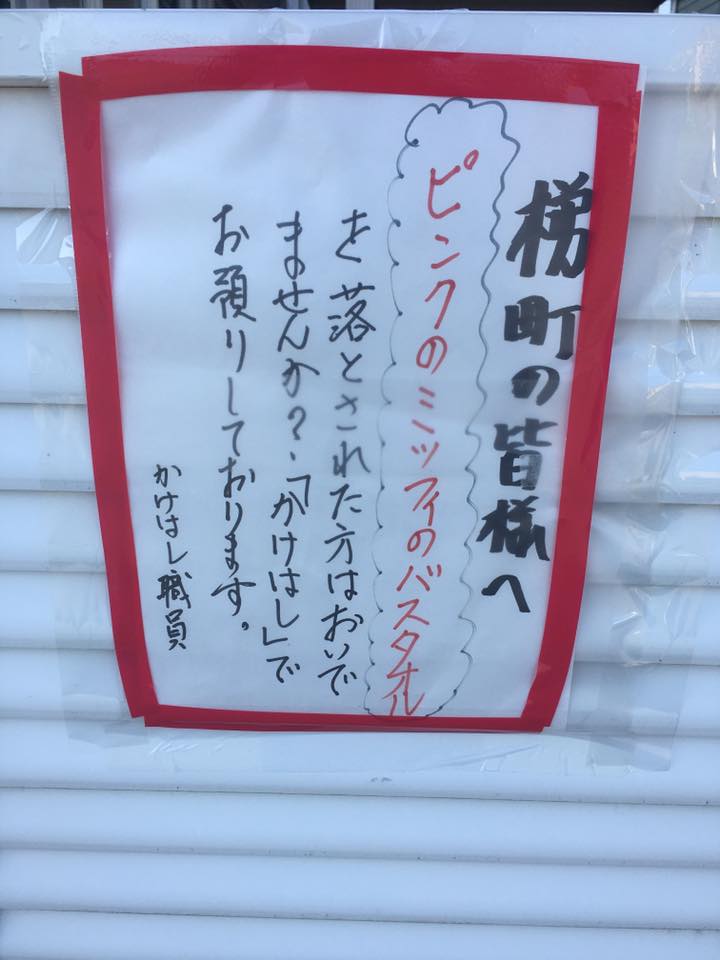 梯町の皆様へ
ピンクのミッフィのバスタオル
を落とされた方はおいで
ませんか?「かけはし」で
お預りしております。
かけはし職員